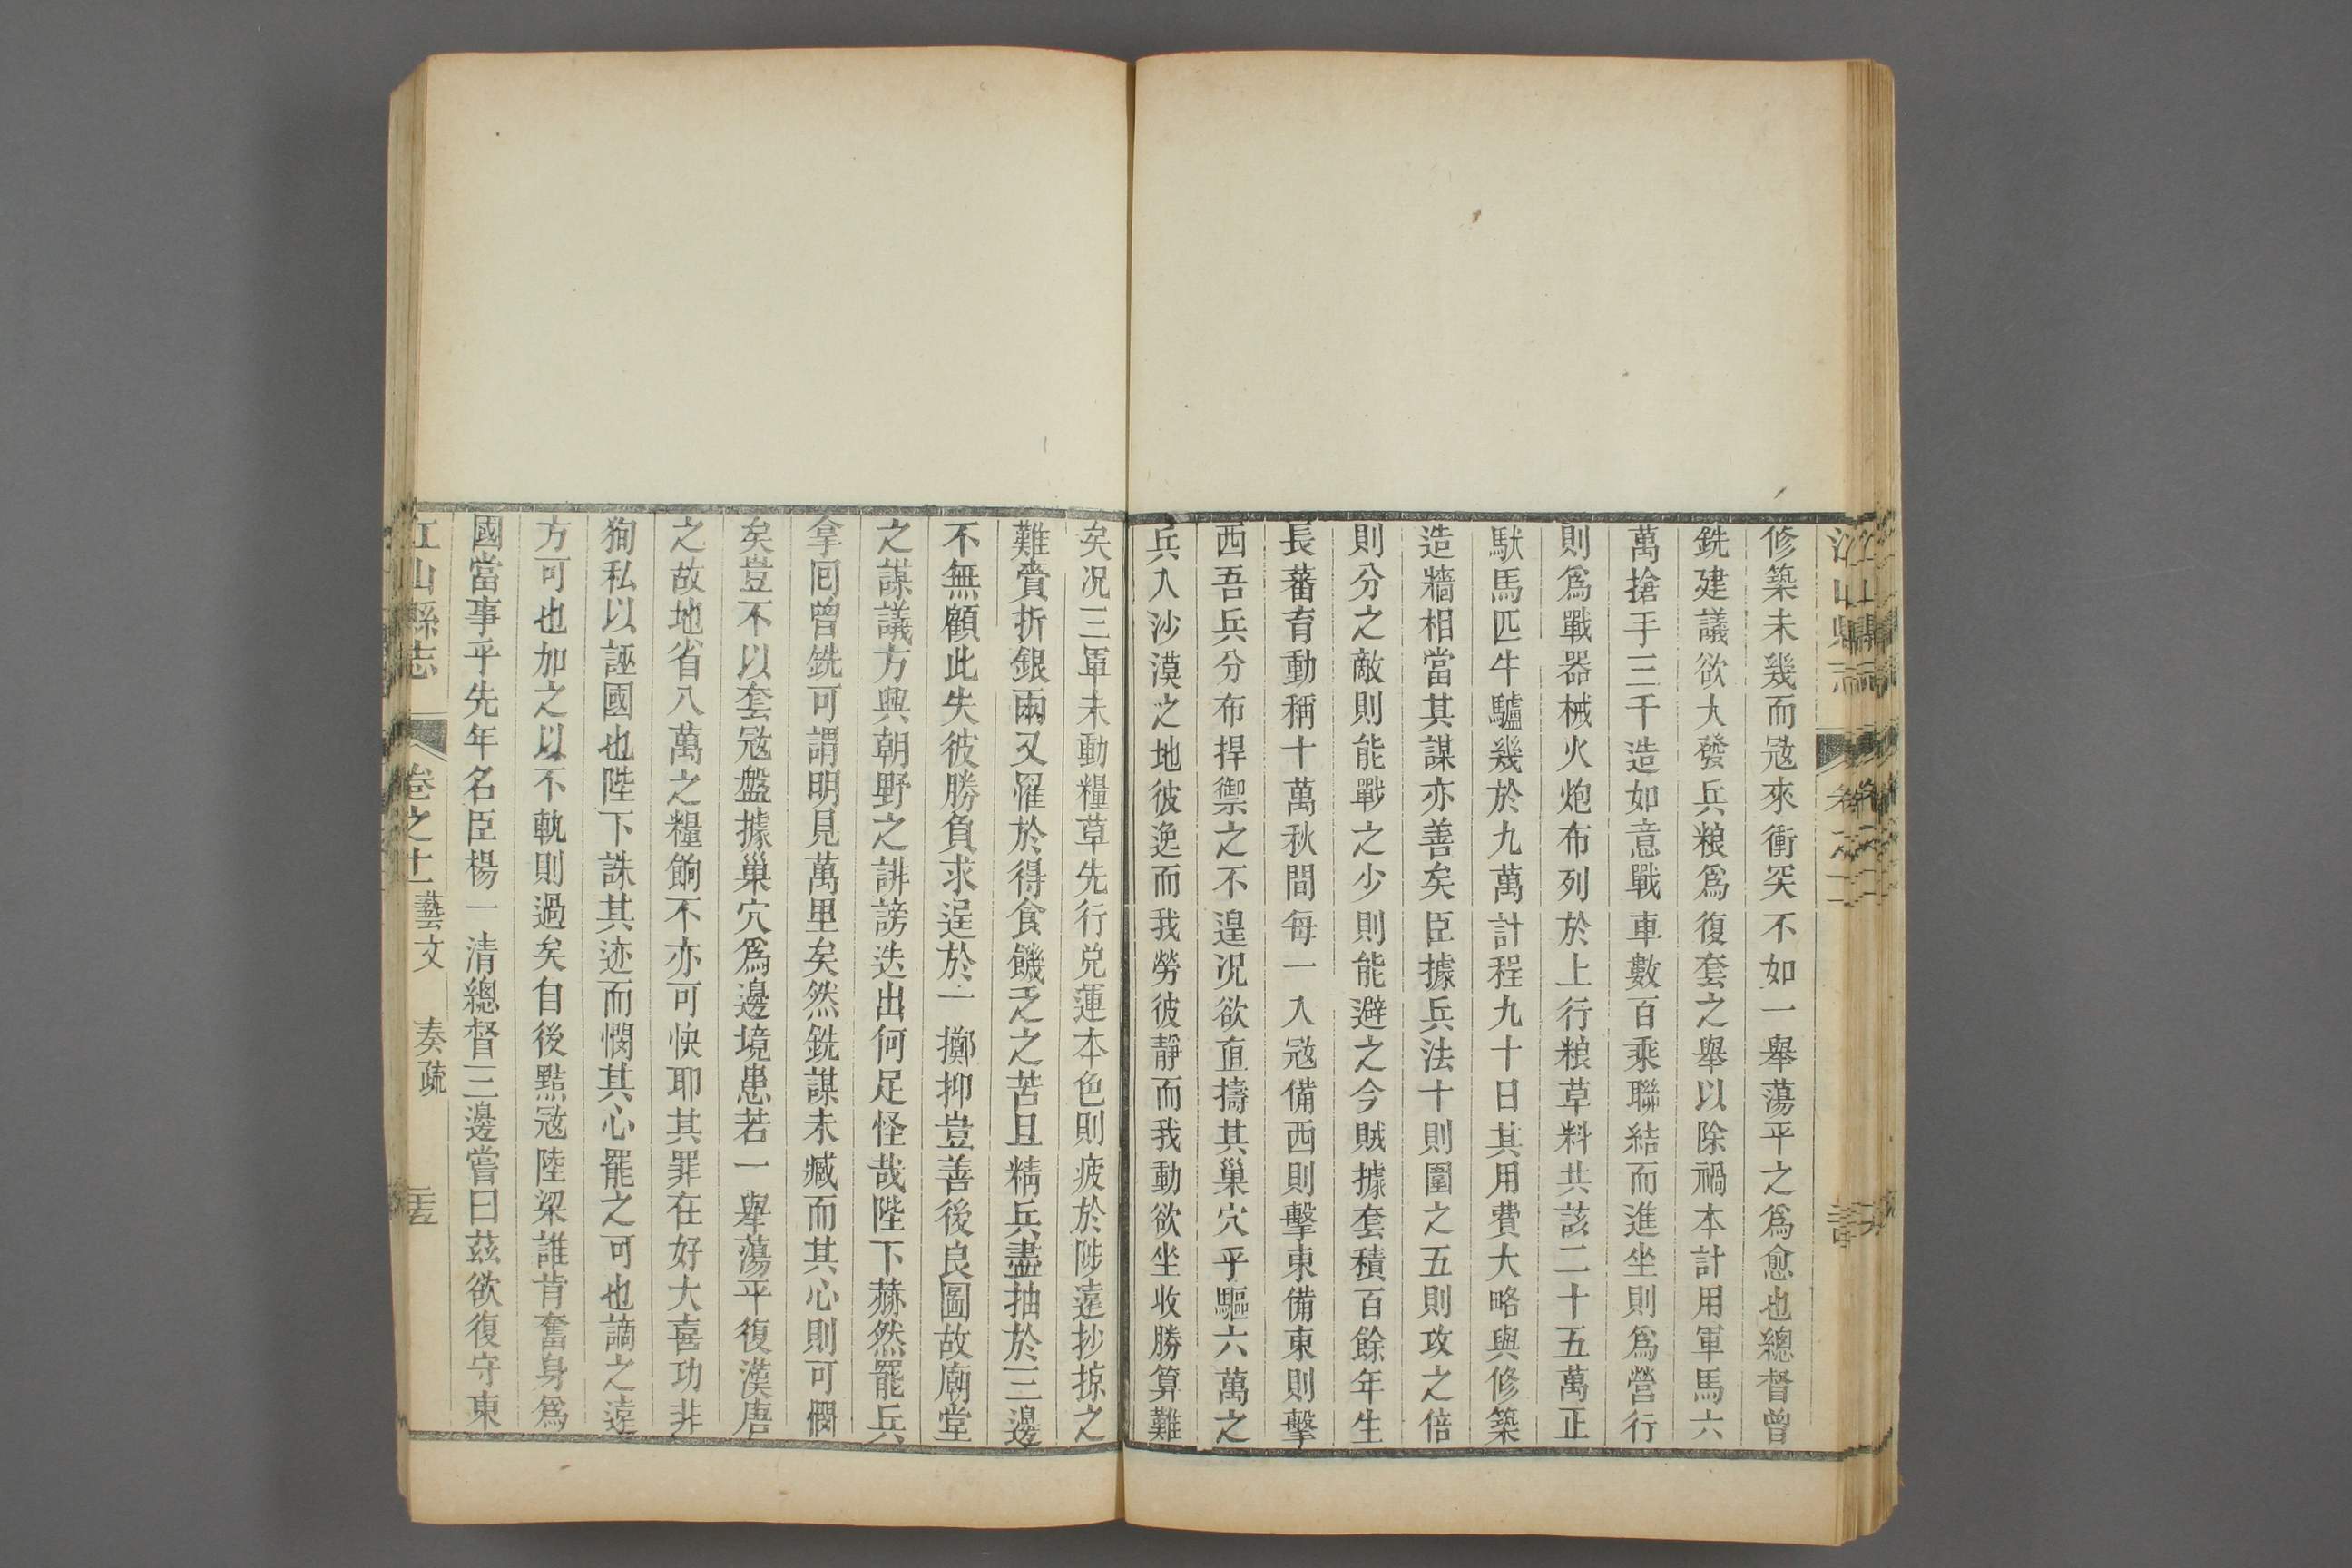 修築未幾而冦來衝突不如一舉蕩平之爲愈也總督曾
銑建議欲大發兵粮爲復套之舉以除禍本計用軍馬六
萬搶手三千造如意戰車數百乘聯結而進坐則爲營行
則爲戰器械火炮布列於上行粮草料共該二十五萬正
馱馬匹牛驢幾於九萬計程九十日其用費大略與修築
造牆相當其謀亦善矣臣據兵法十則圍之五則攻之倍
則分之敵則能戰之少則能避之今賊據套積百餘年生
長蕃育動稱十萬秋間每一入冦備西則擊東備東則擊
西吾兵分布捍禦之不遑况欲直擣其巢穴乎驅六萬之
兵入沙漠之地彼逸而我勞彼靜而我動欲坐收勝算難
矣况三軍未動糧草先行兌運本色則疲於陟遠抄掠之
難賫折銀兩又罹於得食饑乏之苦且精兵盡抽於三邊
不無顧此失彼勝負求逞於一擲抑豈善後良圖故廟堂
之謀議方興朝野之誹謗迭出何足怪哉陛下赫然罷兵
拿囘曾銑可謂明見萬里矣然銑謀未臧而其心則可憫
矣豈不以套冦盤據巢穴爲邊境患若一舉蕩平復漢唐
之故地省八萬之糧餉不亦可快耶其罪在好大喜功非
狥私以誣國也陛下誅其迹而憫其心罷之可也謫之遠
方可也加之以不軌則過矣自後黠冦陸梁誰肯奮身爲
國當事乎先年名臣楊一清總督三邊嘗曰茲欲復守東
江山縣志 卷之十一 藝文 奏疏 二十五